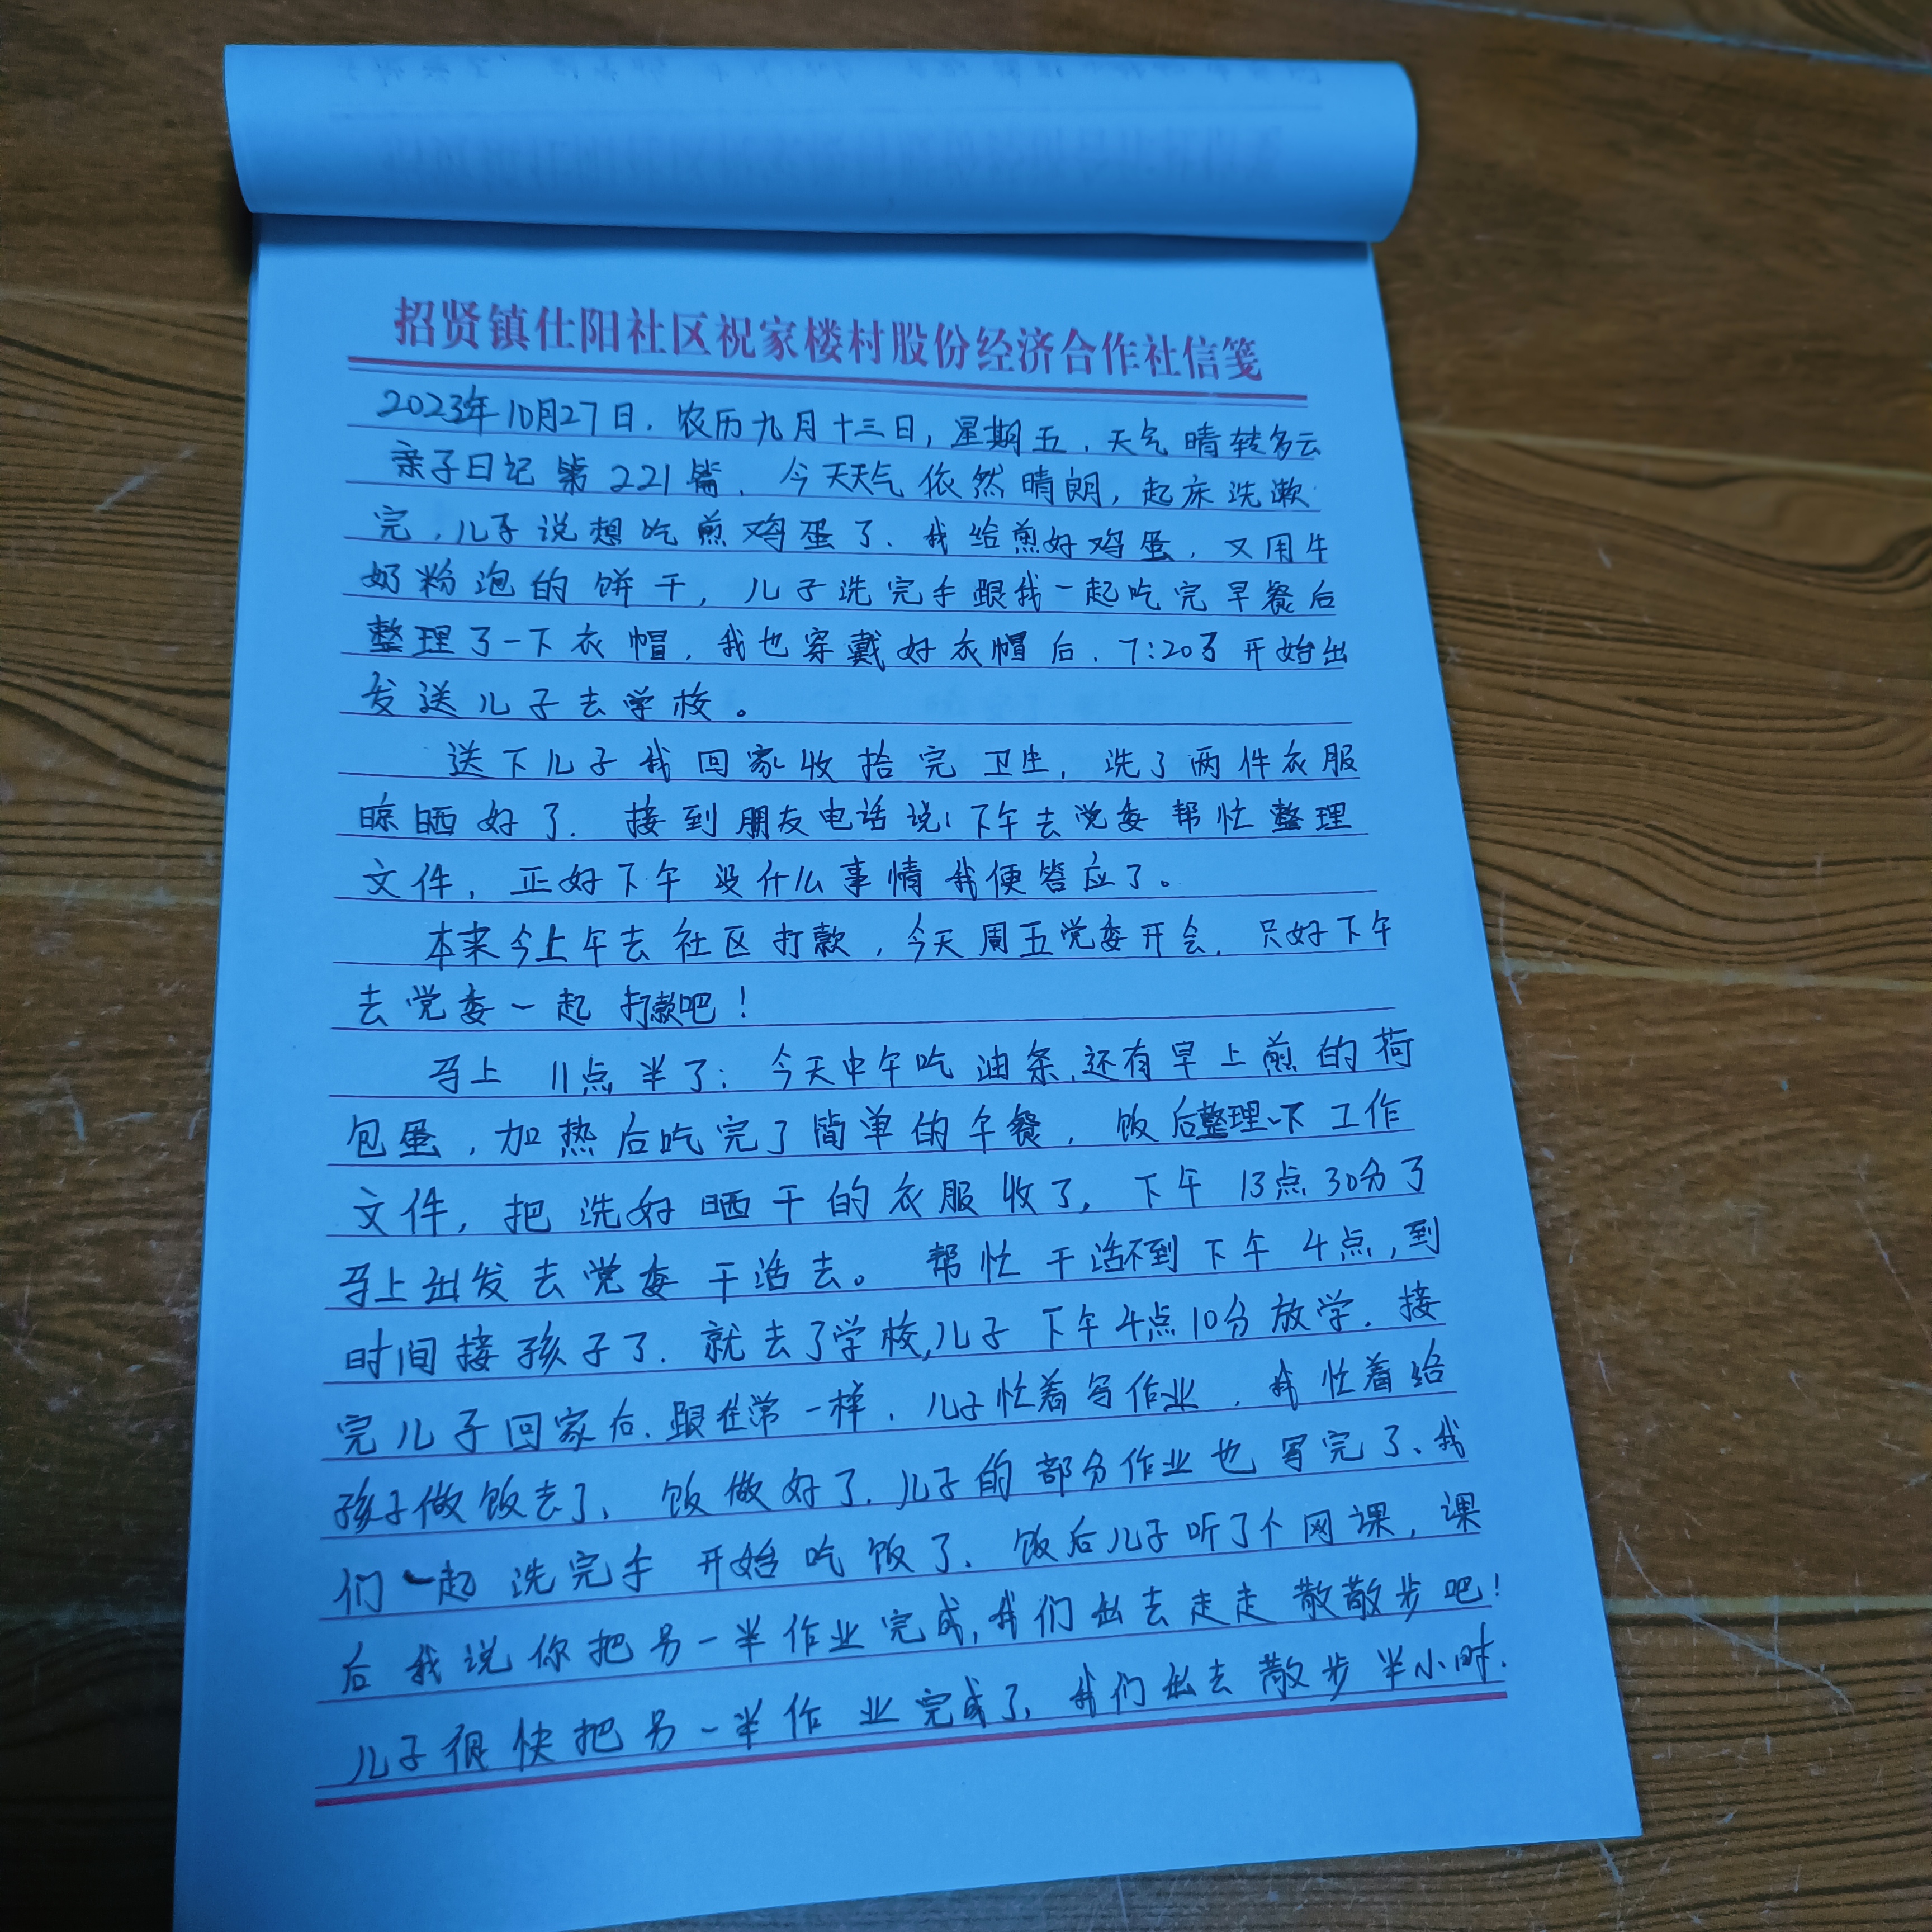 招贤镇仕阳社区祝家楼村股份经济合作社信笺
2023年10月27日.农历九月十三日,星期五.天气晴转多云
亲子日记第221篇.今天天气依然晴朗,起床洗漱
完,儿子说想吃煎鸡蛋了.我给煎好鸡蛋,又用牛
奶粉泡的饼干,儿子洗完手跟我一起吃完早餐后
整理了一下衣帽,我也穿戴好衣帽后.7:20了开始出
发送儿子去学校。
送下儿子我回家收拾完卫生,洗了两件衣服
晾晒好了.接到朋友电话说:下午去党委帮忙整理
文件,正好下午没什么事情我便答应了。
本来今上午去社区打款,今天周五党委开会.只好下午
去党委一起打款吧!
马上11点半了;今天中午吃油条,还有早上煎的荷
包蛋,加热后吃完了简单的午餐,饭后整理一下工作
文件,把洗好晒干的衣服收了,下午13点30分了
马上出发去党委干活去。帮忙干活不到下午4点,到
时间接孩子了.就去了学校,儿子下午4点10分放学.接
完儿子回家后.跟往常一样.儿子忙着写作业,我忙着给
孩子做饭去了、饭做好了.儿子的部分作业也写完了、我
们一起洗完手开始吃饭了.饭后儿子听了个网课,课
后我说你把另一半作业完成,我们出去走走散散步吧!
儿子很快把另一半作业完成了,我们出去散步半小时.